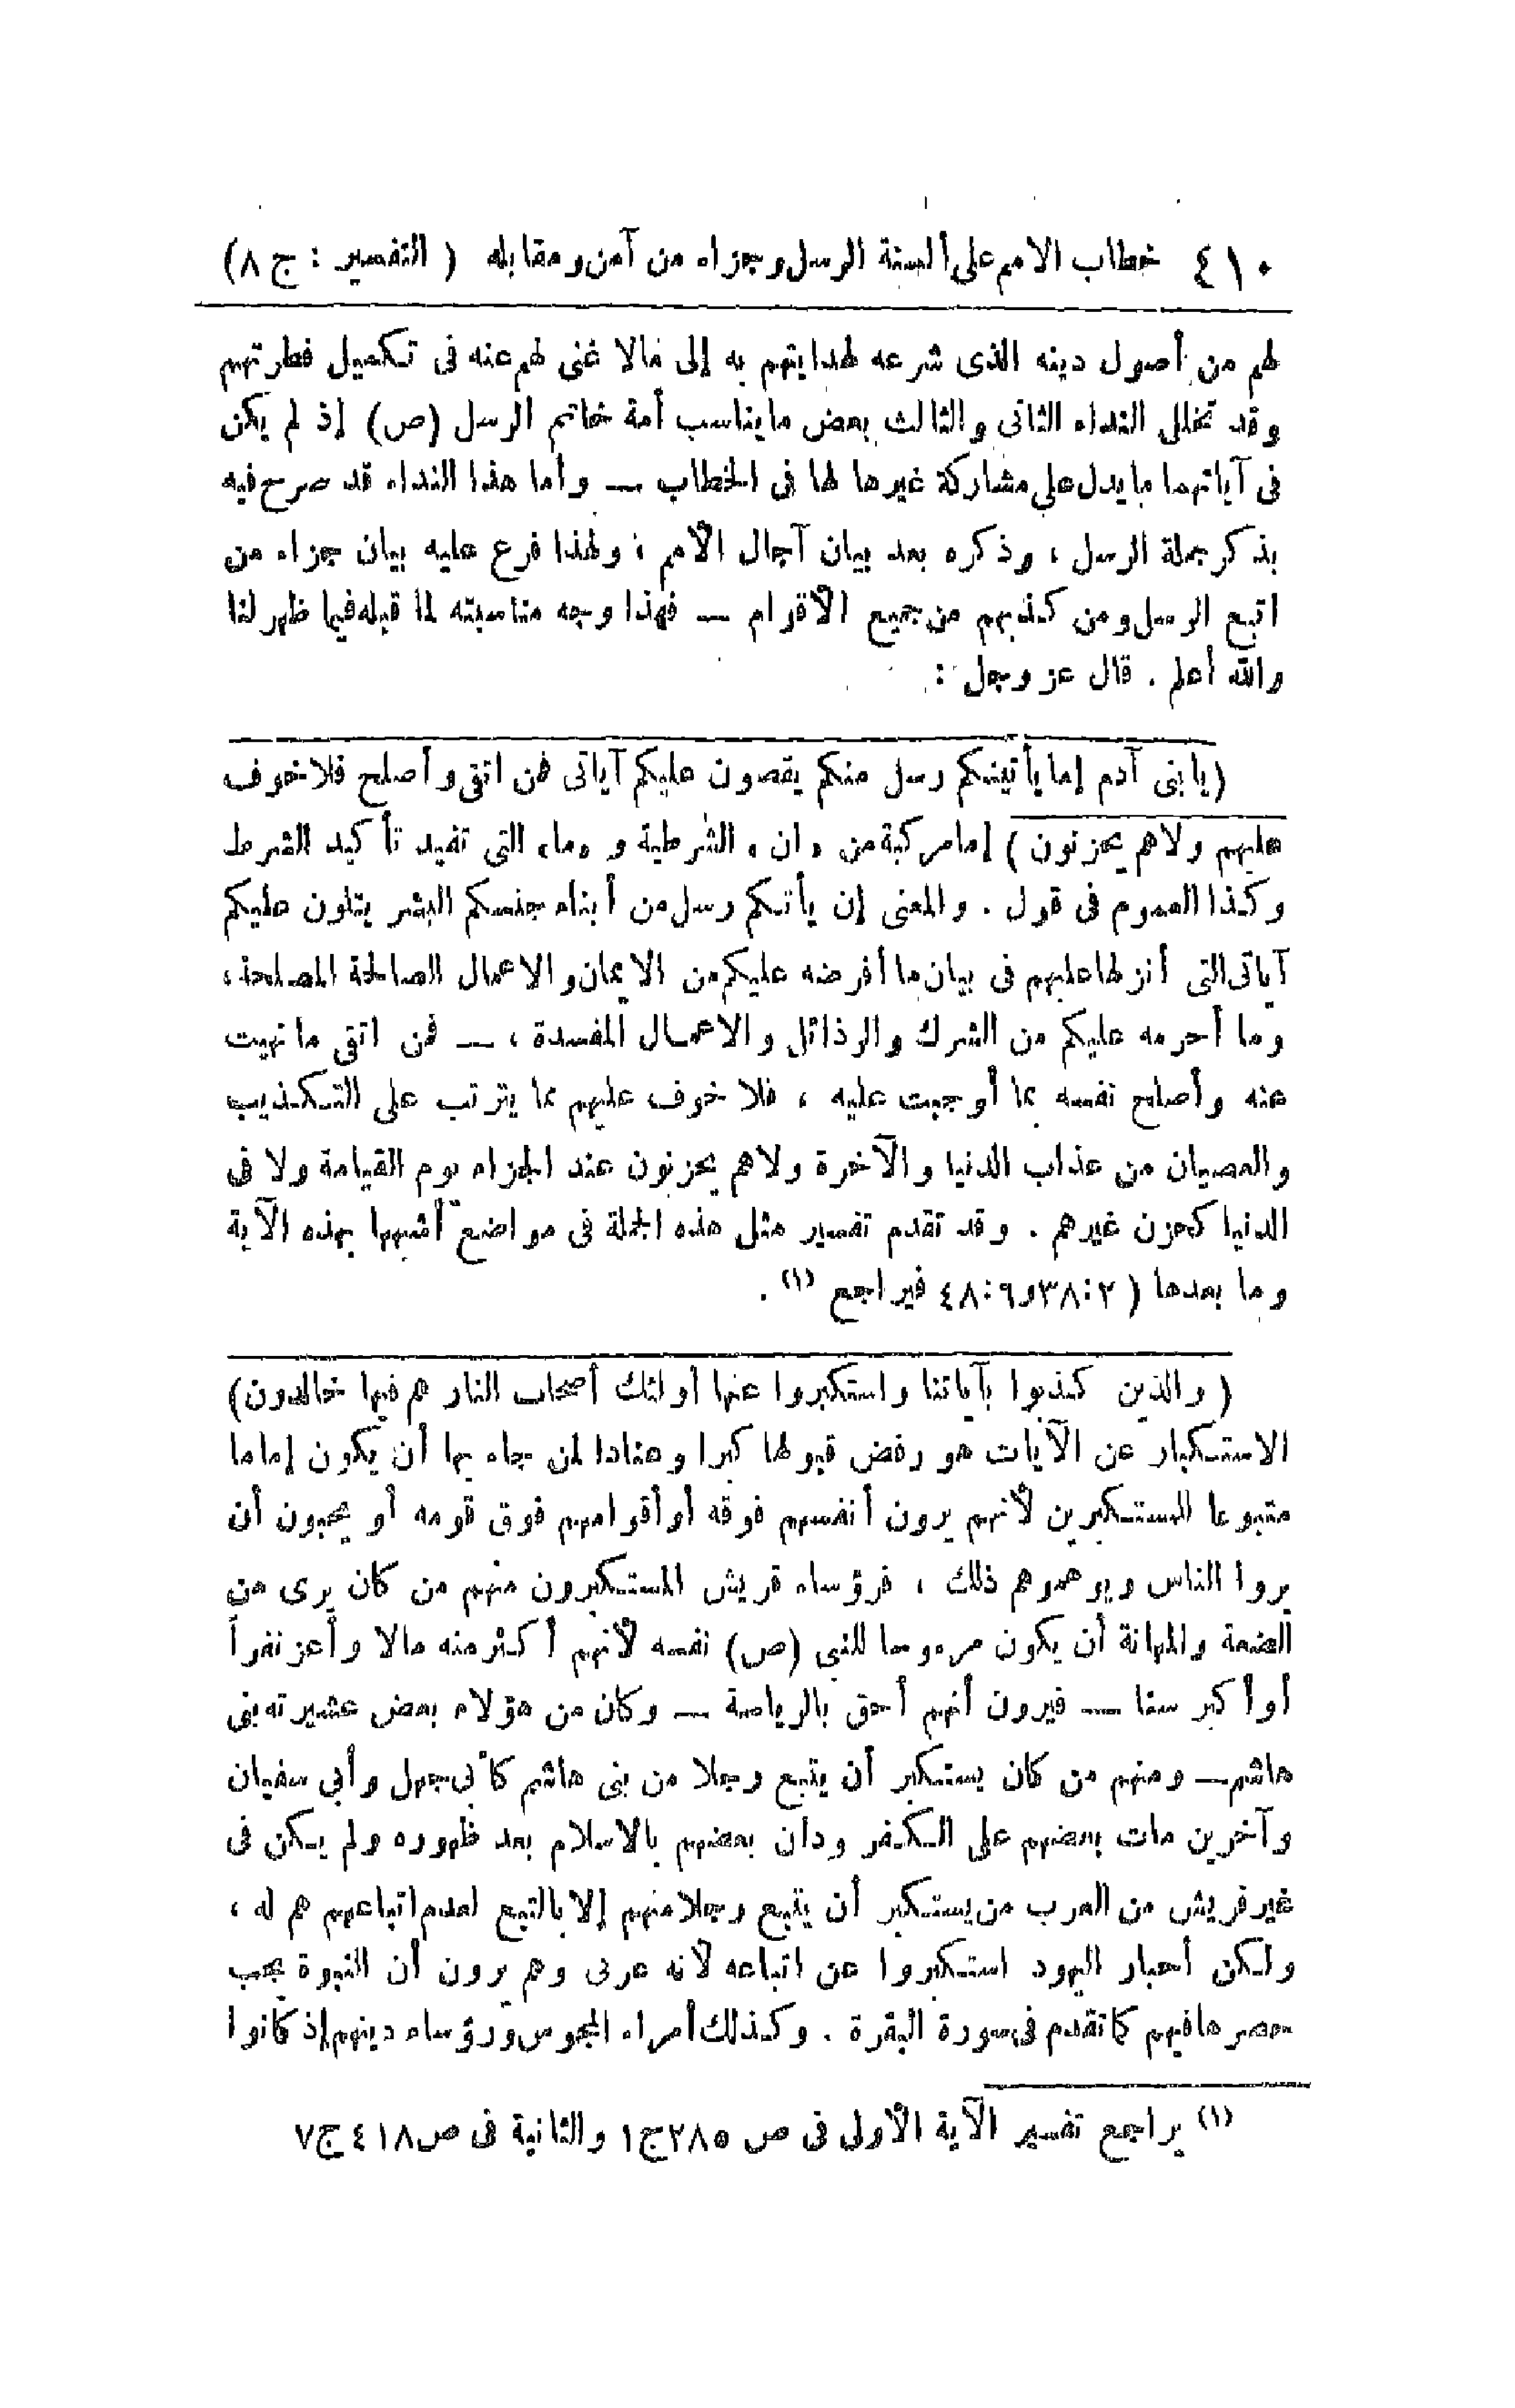 ٤١٠ خطاب الامم على ألسنة الرسل وجزاء من آمن ومقابله ( التفسير : ج ٨)
لهم من أصول دينه الذى شرعه لهدايتهم به إلى مالا غنى لهم عنه فى تكميل فطرتهم
وقد تخلل النداء الثانى والثالث بعض ما يناسب أمة خاتم الرسل (ص) إذ لم يكن
فى آياتهما ما يدل على مشاركة غيرها لها فى الخطاب — وأما هذا النداء قد صرح فيه
بذكر جملة الرسل ، وذكره بعد بيان آجال الأمم ، ولهذا فرع عليه بيان جزاء من
اتبع الرسل ومن كذبهم من جميع الأقوام — فهذا وجه مناسبته لما قبله فيما ظهر لنا
والله أعلم . قال عز وجل :
(يا بنى آدم إما يأتينكم رسل منكم يقصون عليكم آياتى فمن اتقى وأصلح فلا خوف
عليهم ولاهم يحزنون ) إما مركبة من «ان» الشرطية و «ما» التى تفيد تأكيد الشرط
وكذا العموم فى قول . والمعنى إن يأتكم رسل من أبناء جنسكم البشر يتلون عليكم
آياتى التى أنزلها عليهم فى بيان ما أفرضه عليكم من الايمان والاعمال الصالحة المصلحة ،
وما أحرمه عليكم من الشرك والرذائل والاعمال المفسدة ، — فمن اتقى ما نهيت
عنه وأصلح نفسه بما أوجبت عليه ، فلا خوف عليهم مما يترتب على التكذيب
والعصيان من عذاب الدنيا والآخرة ولاهم يحزنون عند الجزاء يوم القيامة ولا فى
الدنيا كحزن غيرهم . وقد تقدم تفسير مثل هذه الجملة فى مواضع أشبهها بهذه الآية
وما بعدها ( ٢:٣٨و٦:٤٨ فيراجع (١) .
( والذين كذبوا بآياتنا واستكبروا عنها أولئك أصحاب النار هم فيها خالدون)
الاستكبار عن الآيات هو رفض قبولها كبرا وعنادا لمن جاء بها أن يكون إماما
متبوعا للمستكبرين لأنهم يرون أنفسهم فوقه أو أقوامهم فوق قومه أو يحبون أن
يروا الناس ويوهموهم ذلك ، فرؤساء قريش المستكبرون منهم من كان يرى من
الضعة والمهانة أن يكون مرءوسا للنبى (ص) نفسه لأنهم أكثر منه مالا وأعز نفراً
أو أكبر سنا — فيرون أنهم أحق بالرياسة — وكان من هؤلاء بعض عشيرته بنى
هاشم — ومنهم من كان يستكبر أن يتبع رجلا من بنى هاشم كأبى جهل وأبي سفيان
وآخرين مات بعضهم على الكفر ودان بعضهم بالاسلام بعد ظهوره ولم يكن فى
غير قريش من العرب من يستكبر أن يتبع رجلا منهم إلا بالتبع لعدم اتباعهم هم له ،
ولكن أحبار اليهود استكبروا عن اتباعه لأنه عربى وهم يرون أن النبوة يجب
حصرها فيهم كما تقدم فى سورة البقرة . وكذلك أمراء المجوس ورؤساء دينهم إذ كانوا
(١) يراجع تفسير الآية الأولى فى ص ٢٨٥ج١ والثانية فى ص٤١٨ج٧